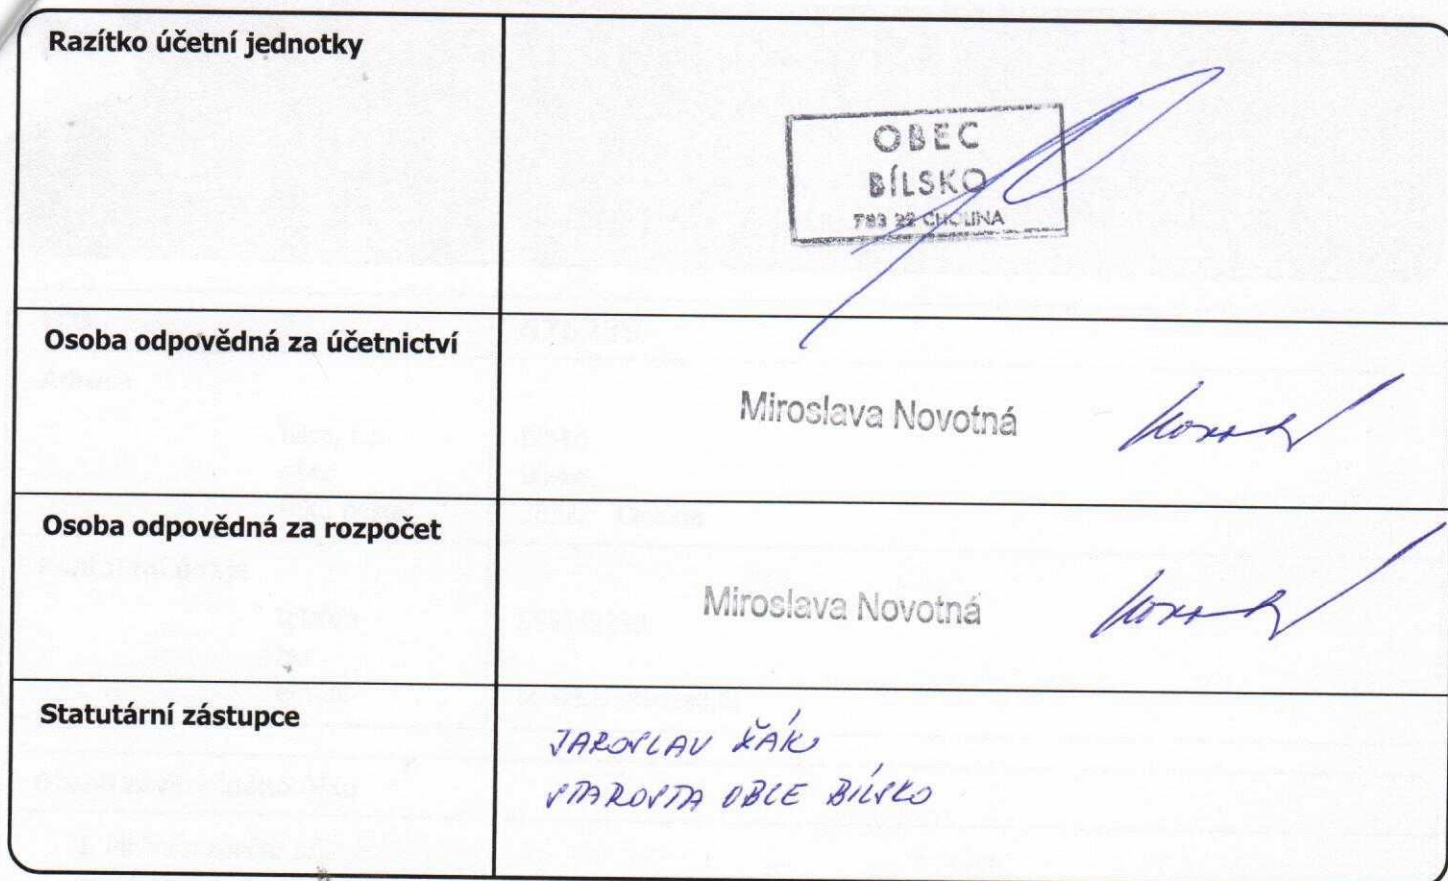 Razítko účetní jednotky
OBEC
BÍLSKO
783 22 CHOLINA
Osoba odpovědná za účetnictví
Miroslava Novotná
Osoba odpovědná za rozpočet
Miroslava Novotná
Statutární zástupce
JAROSLAV ŽÁK
STAROSTA OBCE BÍLSKO